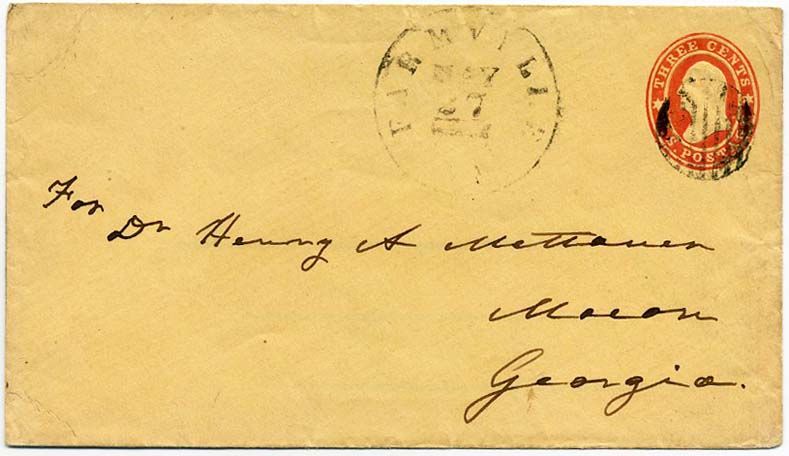 FARMVILLE
MAY
27
THREE CENTS
U.S. POSTAGE
For Dr Henry A Mettauer
Macon
Georgia.